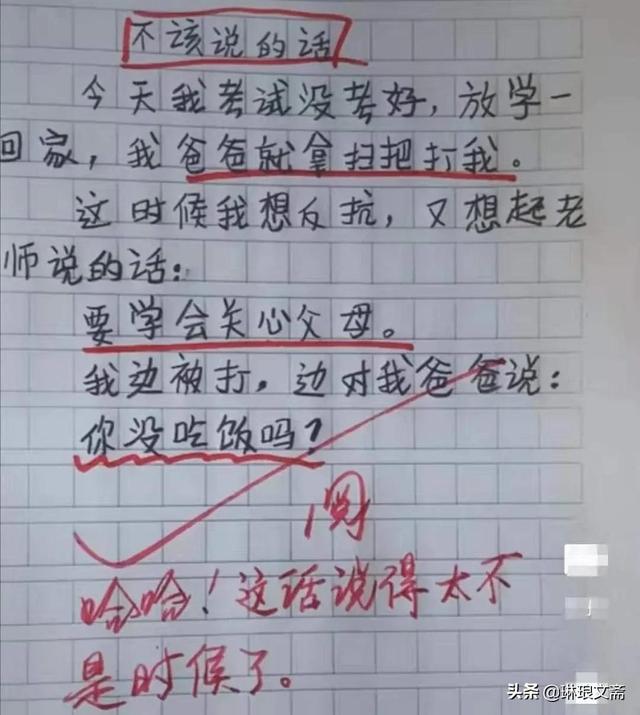 不该说的话
今天我考试没考好，放学一
回家，我爸爸就拿扫把打我。
这时候我想反抗，又想起老
师说的话：
要学会关心父母。
我边被打，边对我爸爸说：
你没吃饭吗？
阅
哈哈！这话说得太不
是时候了。
头条 @琳琅文斋